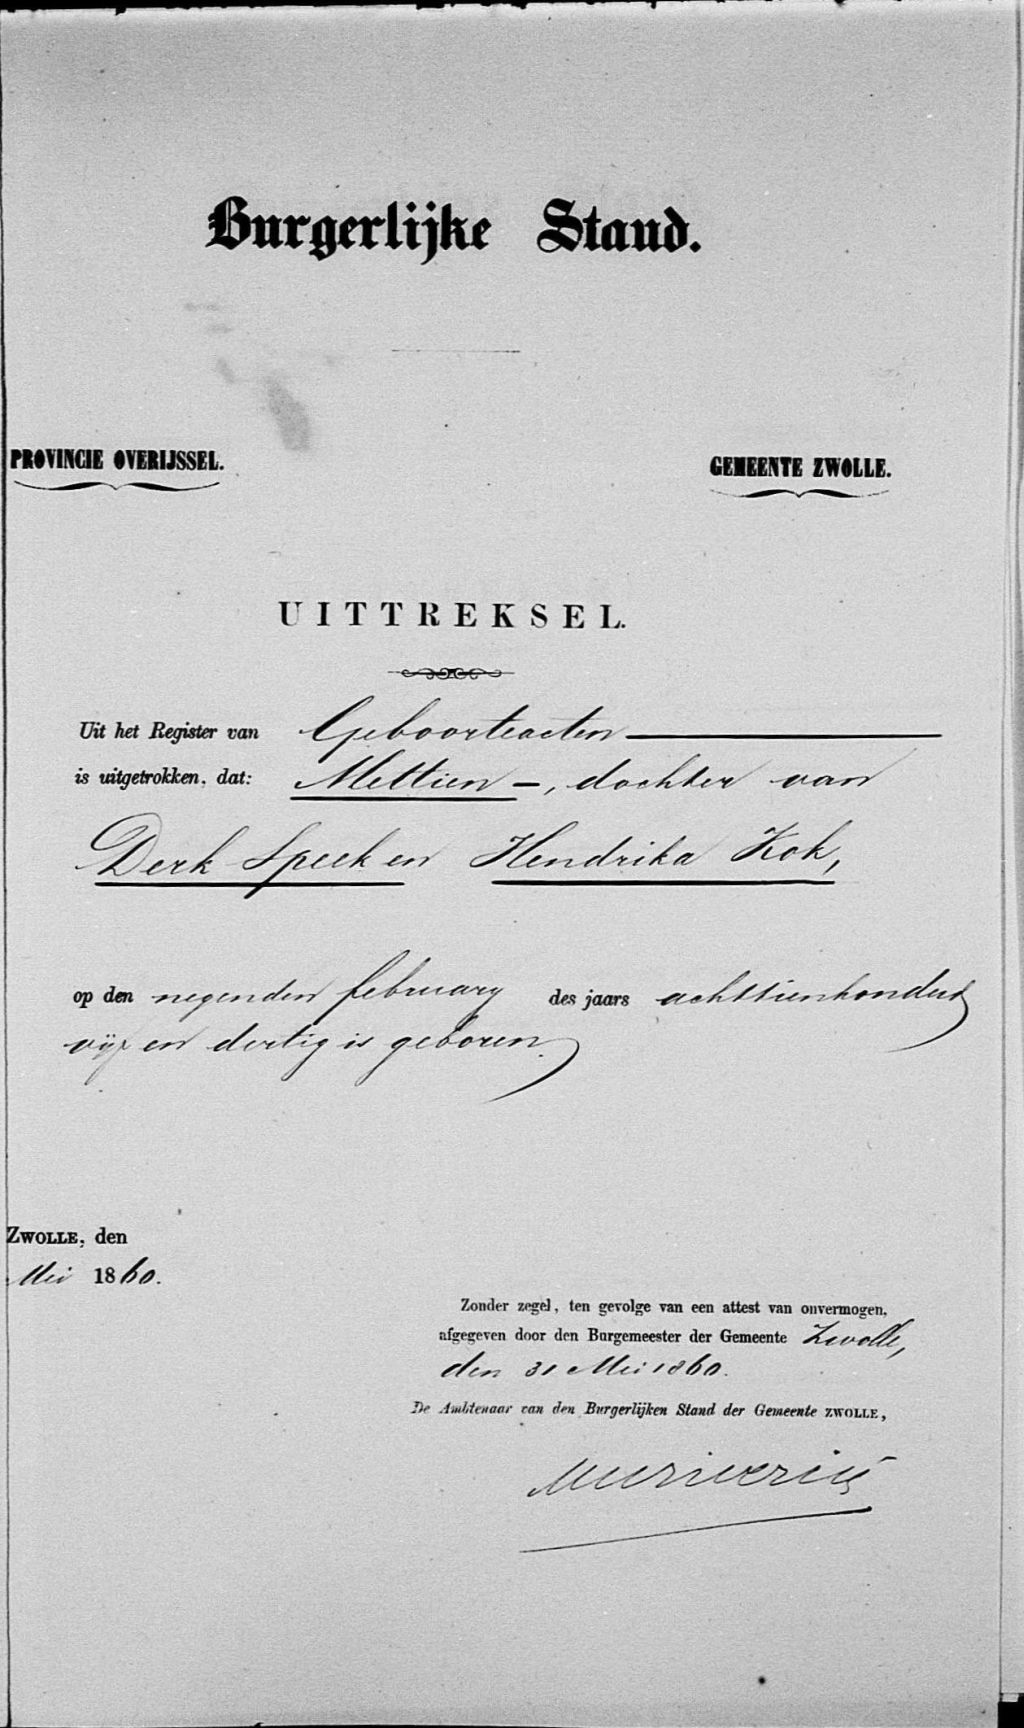 Burgerlijke Stand.
PROVINCIE OVERIJSSEL.
GEMEENTE ZWOLLE.
UITTREKSEL.
Uit het Register van Geboorteacten
is uitgetrokken, dat: Mettien –, dochter van
Derk Speek en Hendrika Kok,
op den negenden february des jaars achttienhonderd
vijf en dertig is geboren.
ZWOLLE, den
Mei 1860.
Zonder zegel, ten gevolge van een attest van onvermogen,
afgegeven door den Burgemeester der Gemeente Zwolle,
den 31 Mei 1860.
De Ambtenaar van den Burgerlijken Stand der Gemeente ZWOLLE,